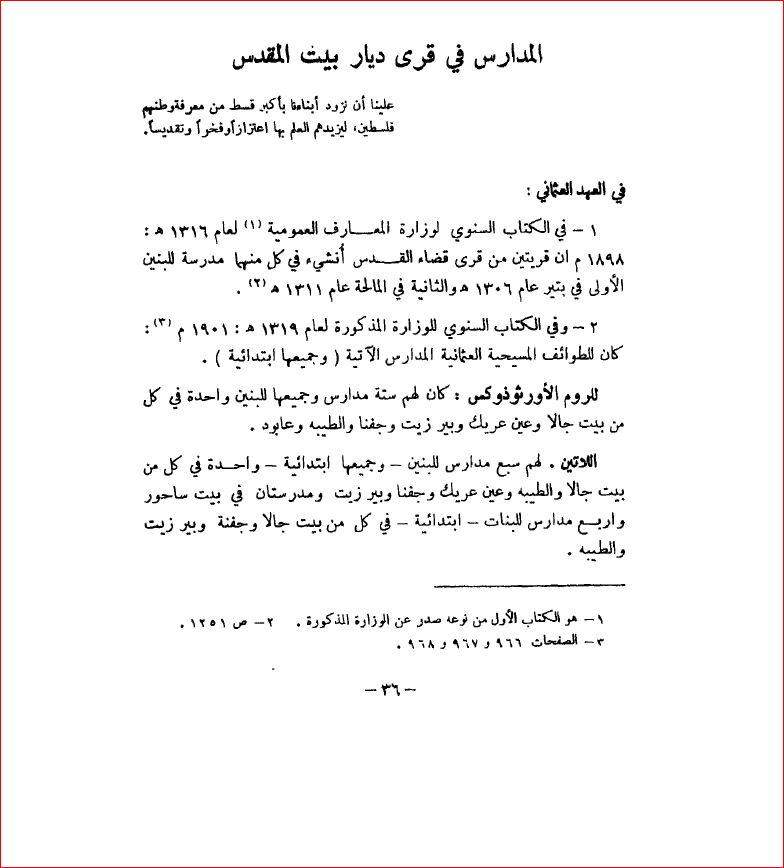 المدارس في قرى ديار بيت المقدس
علينا أن نزود أبناءنا بأكبر قسط من معرفة وطنهم
فلسطين، ليزيدهم العلم بها اعتزازاً وفخراً وتقديساً.
في العهد العثماني :
١ – في الكتاب السنوي لوزارة المعـارف العمومية (١) لعام ١٣١٦ ه :
١٨٩٨ م ان قريتين من قرى قضاء القـدس أُنشيء في كل منهما مدرسة للبنين
الأولى في بتير عام ١٣٠٦ ه والثانية في المالحة عام ١٣١١ ه (٢) .
٢ – وفي الكتاب السنوي للوزارة المذكورة لعام ١٣١٩ ه : ١٩٠١ م (٣) :
كان للطوائف المسيحية العثمانية المدارس الآتية ( وجميعها ابتدائية ) .
للروم الأورثوذوكس : كان لهم ستة مدارس وجميعها للبنين واحدة في كل
من بيت جالا وعين عريك وبير زيت وجفنا والطيبه وعابود .
اللاتين . لهم سبع مدارس للبنين – وجميعها ابتدائية – واحـدة في كل من
بيت جالا والطيبه وعين عريك وجفنا وبير زيت ومدرستان في بيت ساحور
واربع مدارس للبنات – ابتدائية – في كل من بيت جالا وجفنة وبير زيت
والطيبه .
١– هو الكتاب الأول من نوعه صدر عن الوزارة المذكورة . ٢– ص ١٢٥١ .
٣– الصفحات ٩٦٦ و ٩٦٧ و ٩٦٨ .
– ٣٦ –